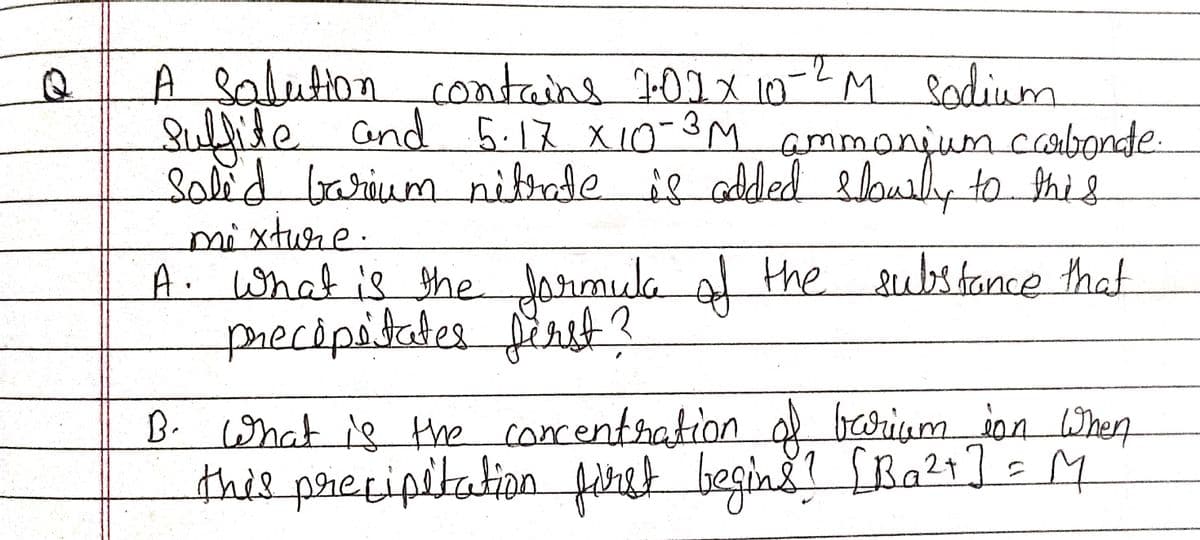 Q A Solution contains 1.01 x 10-2 M Sodium
Sulfite and 5.17 x10-3M ammonium carbonate.
Solid barium nitrate is added slowly to this
mixture.
A. What is the formula of the substance that
precipitates first?
B. What is the concentration of barium ion When
this precipitation first begins? [Ba2+] = M